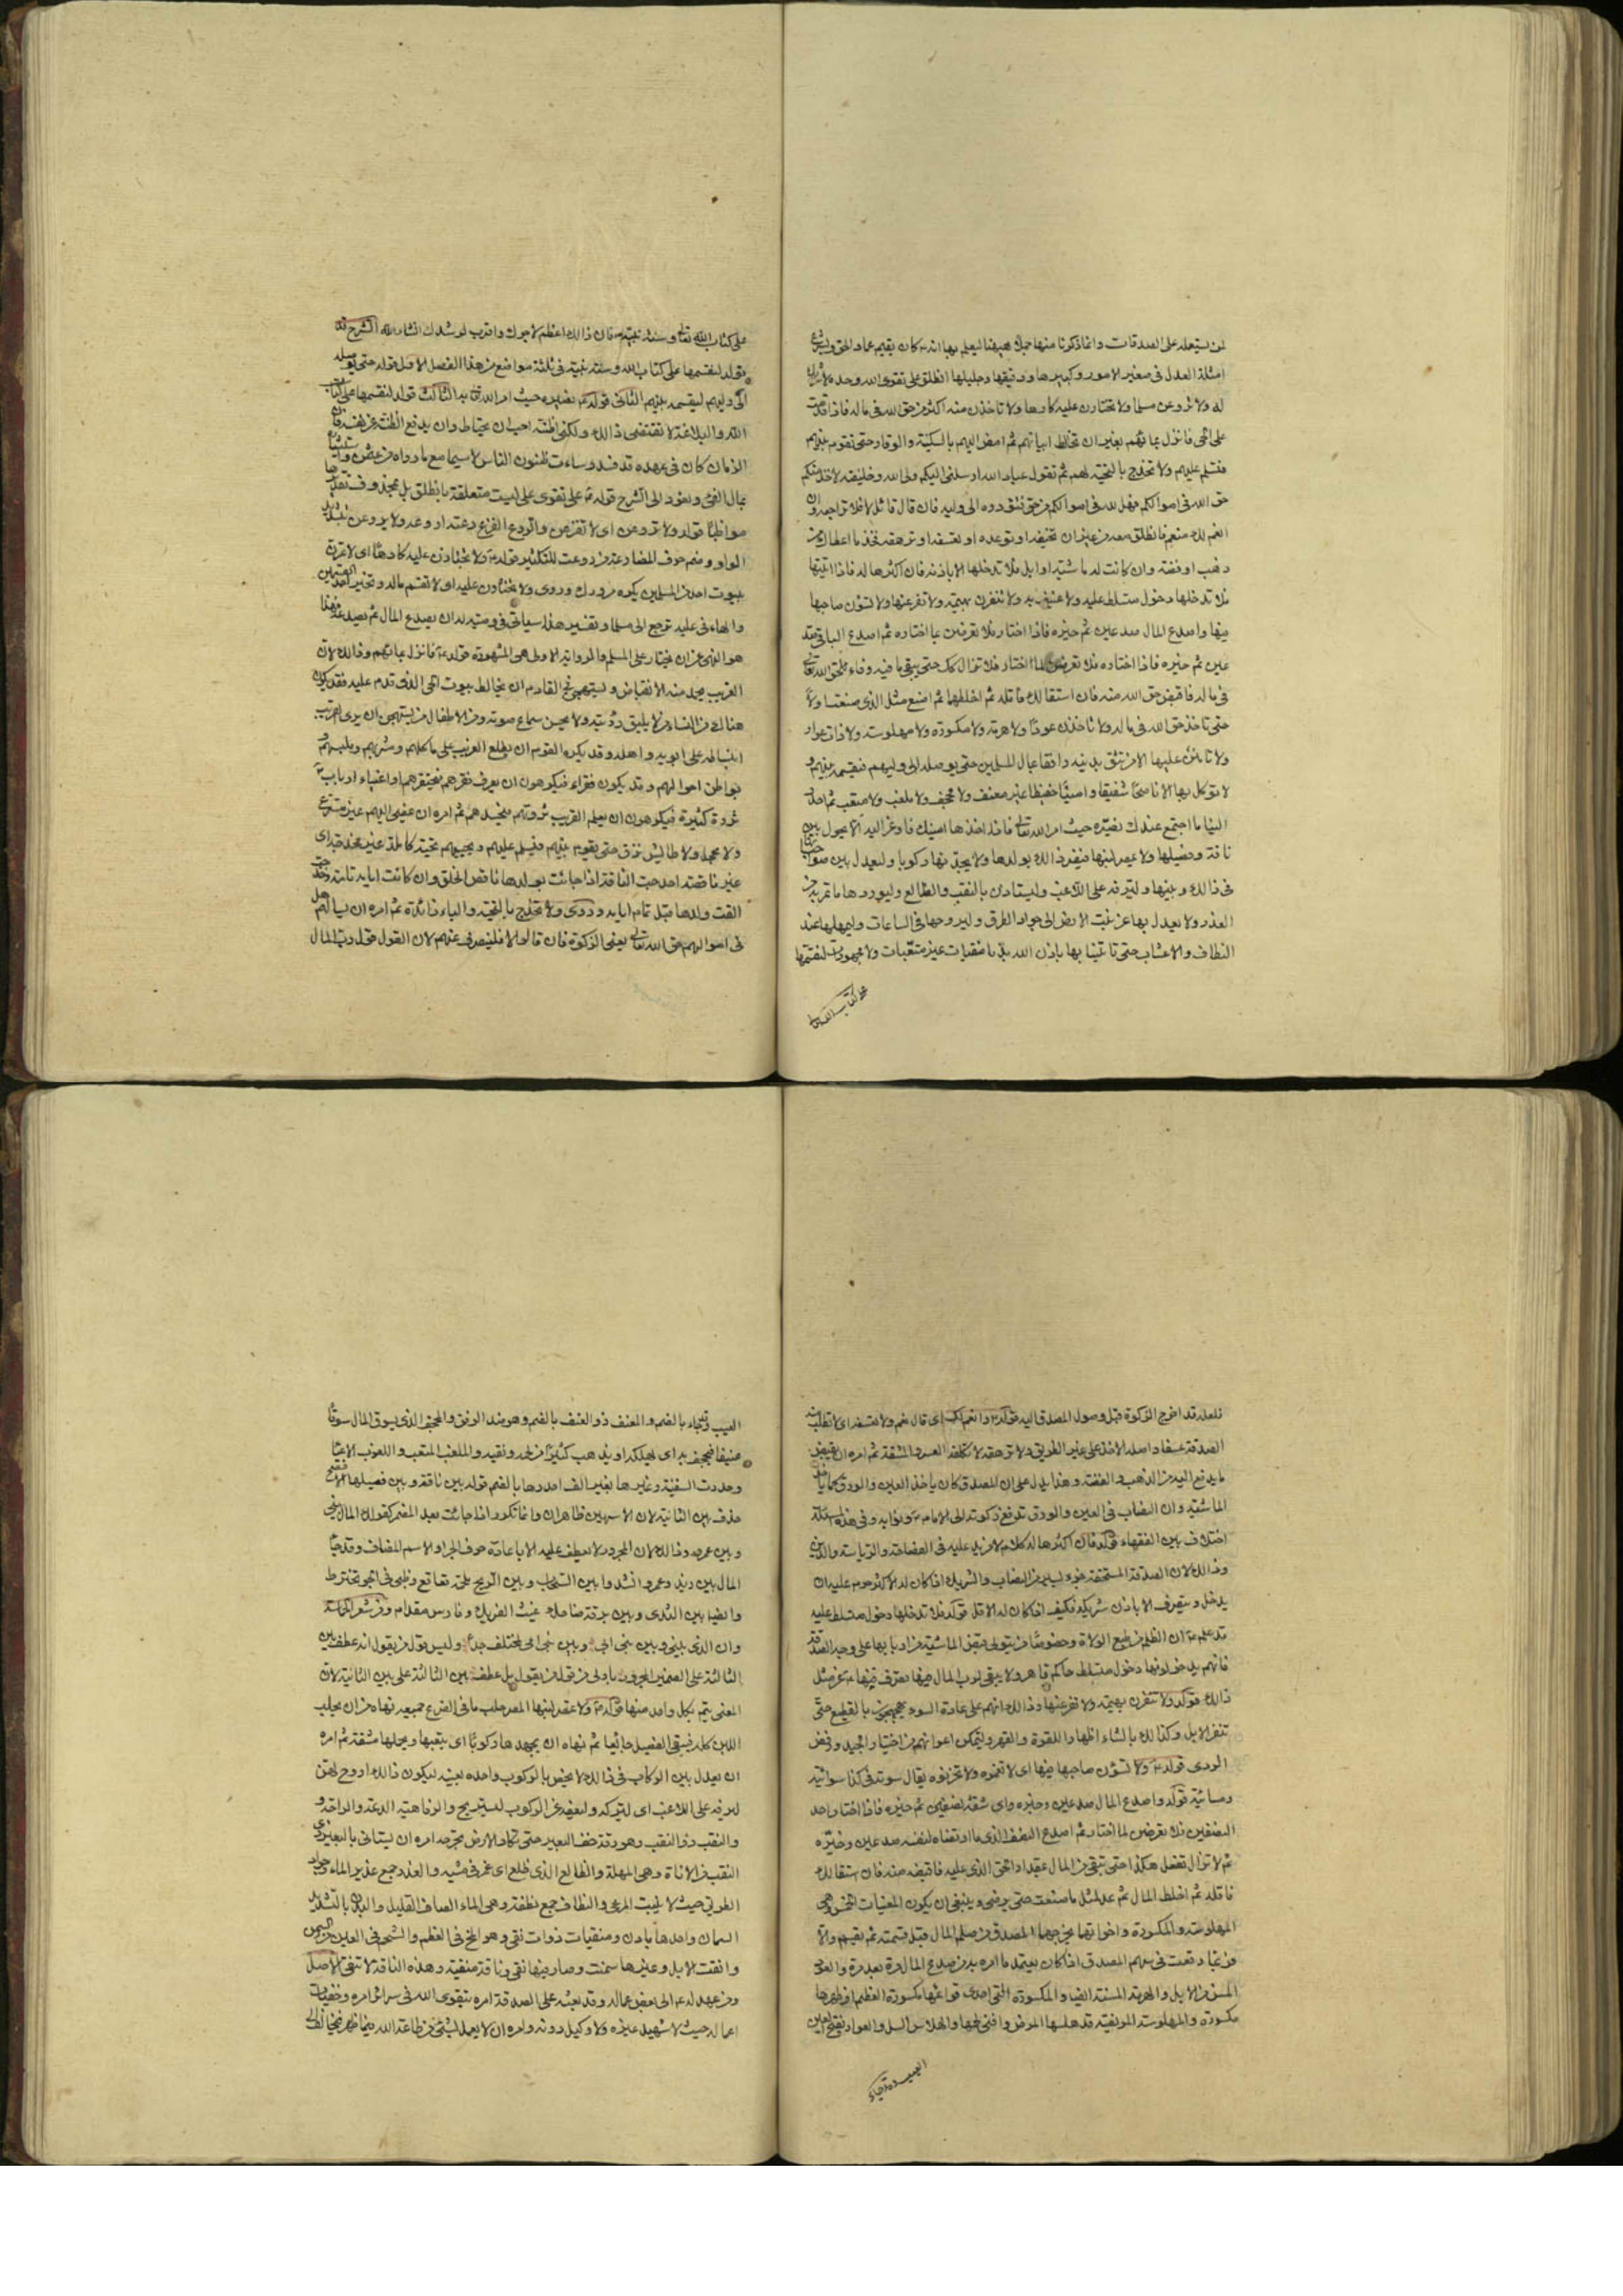 لمن يستعمله على الصدقات وانما ذكرنا منها جملا هيهنا ليعلم بها انه كان يقيم عماد الحق ويشرع
امثلة العدل فى صغير الامور وكبيرها ودقيقها وجليلها انطلق على تقوى الله وحده لا شريك
له ولا تروعن مسلما ولا تختارن عليه كارها ولا تاخذن منه اكثر من حق الله فى ماله فاذا قدمت
على الحى فانزل بمائهم بغير ان تخالط ابياتهم ثم امض اليهم بالسكينة والوقار حتى تقوم بينهم
فتسلم عليهم ولا تخدج بالتحية لهم ثم تقول عباد الله ارسلنى اليكم ولى الله وخليفته لاخذ منكم
حق الله فى اموالكم فهل لله فى اموالكم من حق فتؤدوه الى وليه فان قال قائل لا فلا تراجعه وان
انعم لك منعم فانطلق معه من غير ان تخيفه او توعده او تعسفه او ترهقه فخذ ما اعطاك من
ذهب او فضة وان كانت له ماشية او ابل فلا تدخلها الا باذنه فان اكثرها له فاذا اتيتها
فلا تدخلها دخول متسلط عليه ولا عنيف به ولا تنفرن بهيمة ولا تفزعنها ولا تسؤن صاحبها
فيها واصدع المال صدعين ثم خيره فاذا اختار فلا تعرضن لما اختاره ثم اصدع الباقى صد
عين ثم خيره فاذا اختاره فلا تعرضن لما اختار فلا تزال كك حتى يبقى ما فيه وفاء لحق الله تعالى
فى ماله فاقبض حق الله منه فان استقالك فاقله ثم اخلطهما ثم اصنع مثل الذى صنعت اولا
حتى تاخذ حق الله فى ماله ولا تاخذن عودا ولا هرمة ولا مكسورة ولا مهلوسة ولا ذات عوار
ولا تامنن عليها الا من تثق بدينه رافقا بمال المسلمين حتى يوصله الى وليهم فيقسمه بينهم و
لا توكل بها الا ناصحا شفيقا وامينا حفيظا غير معنف ولا مجحف ولا ملغب ولا متعب ثم احدر
الينا ما اجتمع عندك نصيّره حيث امر الله تعالى فاذا اخذها امينك فاوعز اليه الا يحول بين
ناقة وفصيلها ولا يمصر لبنها فيضر ذلك بولدها ولا يجهدنها ركوبا وليعدل بين صواحباتها
فى ذلك وبينها وليرفه على اللاغب وليستان بالنقب والظالع وليوردها ما تمر به من
الغدر ولا يعدل بها عن نبت الارض الى جواد الطرق وليروحها فى الساعات وليمهلها عند
النطاف والاعشاب حتى تاتينا بها باذن الله بدنا منقيات غير متعبات ولا مجهودات لنقسمها
على كتاب الله تعالى
على كتاب الله تعالى وسنة نبيه فان ذلك اعظم لاجرك واقرب لرشدك انشاء الله الشرح قد
قوله لنقسمها على كتاب الله وسنة نبيه فى ثلثة مواضع من هذا الفصل الاول قوله حتى يوصله
الى وليهم ليقسمه بينهم الثانى قوله نصيره حيث امر الله تعالى به الثالث قوله لنقسمها على كتاب
الله والبلاغة لا تقتضى ذلك ولكنى اظنه احب ان يحتاط وان يدفع الظنة عن نفسه فان
الزمان كان فى عهده قد فسد وساءت ظنون الناس لاسيما مع ما رواه من عثمن واستيثاره
بمال الفئ ونعود الى الشرح قوله على تقوى على ليست متعلقة بانطلق بل بمحذوف تقديرها
مواظبا قوله ولا تروعن اى لا تفزعن والروع الفزع رعته اروعه ولا يروعن بتشديد
الواو وضم حرف المضارعة من روعت للتكثير قوله ولا تختارن عليه كارها اى لا تمرن
ببيوت احد من المسلمين يكره مرورك وروى ولا تختارن عليه اى لا تقسم ماله وتختر احد القسمين
والهاء فى عليه ترجع الى مسلما وتفسير هذا سياتى فى وصيته له ان يصدع المال ثم يصدعه فهذا
هو النهى عن ان يختار على المسلم والرواية الاولى هى المشهورة قوله فانزل بمائهم وذلك لان
الغريب يحمد منه الانقباض ويستهجن فى القادم ان يخالط بيوت الحى الذى قدم عليه فقد يكون
هناك من النساء من لا يليق رؤيته ولا يحسن سماع صوته ومن الاطفال من يستهجن ان يرى الغريب
انبساطه على ابويه واهله وقد يكره القوم ان يطلع الغريب على ماكلهم ومشربهم وملبسهم
بواطن احوالهم وقد يكون فقراء فيكرهون ان يعرف فقرهم فيحتقرهم او اغنياء ارباب
ثروة كثيرة فيكرهون ان يعلم الغريب ثروتهم فيحسدهم ثم امره ان يمضى اليهم غير متسرع
ولا عجل ولا طايش نزق حتى يقوم بينهم فيسلم عليهم ويحييهم تحية كاملة غير مخدجة اى
غير ناقصة اخدجت الناقة اذا جائت بولدها ناقص الخلق وان كانت ايامه تامة وخدجت
القت ولدها قبل تمام ايامه وروى ولا تخدج بالتحية والباء زائدة ثم امره ان يسالهم هل
فى اموالهم حق الله تعالى يعنى الزكوة فان قالوا لا فلينصرف عنهم لان القول قول رب المال
فلعله قد اخرج الزكوة قبل وصول المصدق اليه قوله وانعم لك اى قال نعم ولا تعسفه اى لا تطلب منه
الصدقة عسفا واصله الاخذ على غير الطريق ولا ترهقه لا تكلفه العسر والمشقة ثم امره ان يقبض
ما يدفع اليه من الذهب والفضة وهذا يدل على ان المصدق كان ياخذ العين والورق كما ياخذ
الماشية وان النصاب فى العين والورق تدفع زكوته الى الامام ونوابه وفى هذه المسئلة
اختلاف بين الفقهاء قوله فان اكثرها له كلام لا مزيد عليه فى الفصاحة والرياسة والدين
وذلك لان الصدقة المستحقة جزء يسير من النصاب والشريك اذا كان له الاكثر حرم عليه ان
يدخل ويتصرف الا باذن شريكه فكيف اذا كان له الاقل قوله فلا تدخلها دخول متسلط عليه
قد علم ان الظلم من طبع الولاة وخصوصا من يتولى قبض الماشية من اربابها على وجه الصدقة
فانهم يدخلونها دخول متسلط حاكم قاهر ولا يبقى لرب المال فيها تصرف فنهاه عن مثل
ذلك قوله ولا تنفرن بهيمة ولا تفزعنها وذلك انهم على عادة السوء يهجهجون بالقطيع حتى
تنفر الابل وكذلك بالشاء اظهارا للقوة والقهر وليتمكن اعوانهم من اختيار الجيد ورفض
الردى قوله ولا تسؤن صاحبها فيها اى لا تغموه ولا تحزنوه يقال سوته فى كذا سوائية
ومسائية قوله واصدع المال صدعين وخيره اى شقه نصفين ثم خيره فاذا اختار احد
النصفين فلا تعرض لما اختار ثم اصدع النصف الذى ما ارتضاه لنفسه صدعين وخيّره
ثم لا تزال تفعل هكذا حتى تبقى من المال بمقدار الحق الذى عليه فاقبضه منه فان استقالك
فاقله ثم اخلط المال ثم عد لمثل ما صنعت حتى يرضى وينبغى ان يكون المعيبات الخمس وهى
المهلوسة والمكسورة واخواتها يخرجها المصدق من صلم المال قبل قسمته ثم يقسم والا
فربما وقعت فى سهم المصدق اذا كان يعتمد ما امره به من صدع المال مرة بعد مرة والعود
المسن من الابل والهرمة المسنة ايضا والمكسورة التى احدى قوائمها مكسورة العظم او ظهرها
مكسورة والمهلوسة المريضة قد هلسها المرض وافنى لحمها والهلاس السل والعوار بفتح العين
العيب وقد جاء
العيب وقد جاء بالضم والمعنف ذو العنف بالضم وهو ضد الرفق والمجحف الذى يسوق المال سوقا
عنيفا فيجحف به اى يهلكه او يذهب كثيرا من لحمه ونقيه والملغب المتعب واللغوب الاعيا
وحدرت السفينة وغيرها بغير الف احدرها بالضم قوله بين ناقة وبين فصيلها الافصح
حذف بين الثانية لان الاسمين ظاهران وانما تكرر اذا جائت بعد المضمر كقولك المال بينى
وبين عمرو وذلك لان المجرور لا يعطف عليه الا باعادة حرف الجر او الاسم المضاف وقد جاء
المال بين زيد وعمرو انشدوا بين السحاب وبين الريح ملحمة قعاقع وظبى فى الجو تخترط
وايضا بين الندى وبين برقة ضاحك غيث الضريك وفارس مقدام ومن شعر الحماسة
وان الذى بينى وبين بنى ابى وبين بنى عمى لمختلف جدا وليس قول من يقول انه عطف بين
الثالثة على الضمير المجرور باولى من قول من يقول بل عطف بين الثالثة على بين الثانية لان
المعنى يتم بكل واحد منها قوله ولا يمصر لبنها المصر حلب ما فى الضرع جميعه نهاه من ان يحلب
اللبن كله فيبقى الفصيل جائعا ثم نهاه ان يجهدها ركوبا اى يتعبها ويحملها مشقة ثم امره
ان يعدل بين الركاب فى ذلك لا يخص بالركوب واحدة بعينها ليكون ذلك اروح لهن
ليرفه على اللاغب اى ليتركه وليعفه عن الركوب ليستريح والرفاهية الدعة والراحة و
والنقب ذو النقب وهو رقة خف البعير حتى تكاد الارض تجرحه امره ان يستانى بالبعير ذى
النقب من الاناة وهى المهلة والظالع الذى ظلع اى غمز فى مشيه والغدر جمع غدير الماء وجواد
الطريق حيث لا ينبت المرعى والنطاف جمع نطفة وهى الماء الصافى القليل والبدن بالتشديد
السمان واحدها بادن ومنقيات ذوات نقى وهو المخ فى العظم والشحم فى العين من السمن
وانقت الابل وغيرها سمنت وصار فيها نقى وناقة منقية وهذه الناقة لا تنقى الاصل
ومن عهد له الى بعض عماله وقد بعثه على الصدقة امره بتقوى الله فى سرائر امره وخفيات
اعماله حيث لا شهيد غيره ولا وكيل دونه وامره ان لا يعمل بشئ من طاعة الله فيما ظهر فيخالف الى